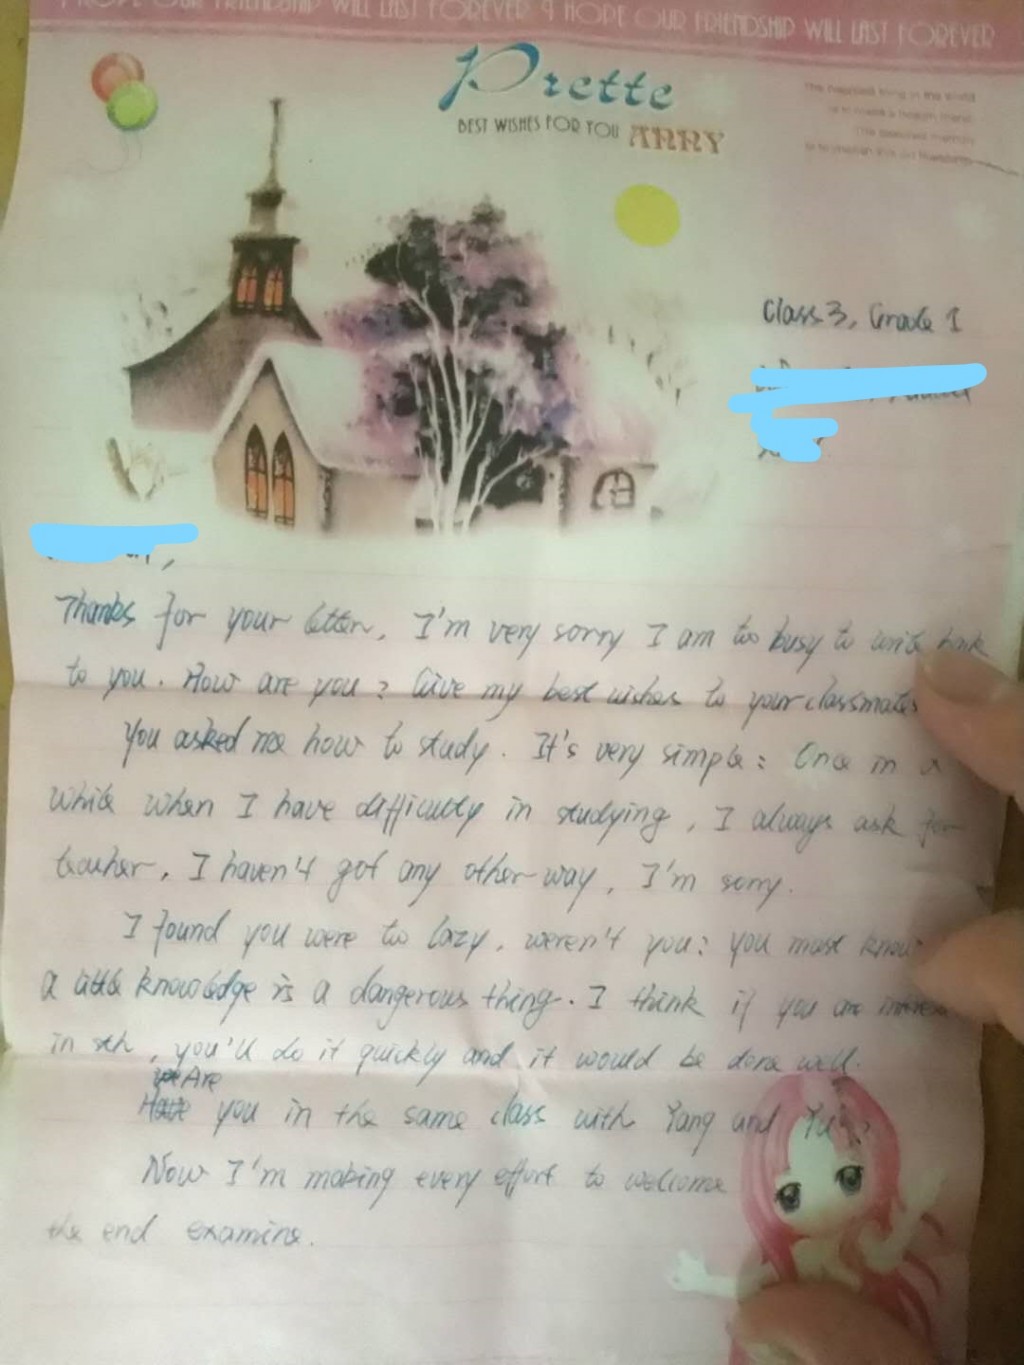 I HOPE OUR FRIENDSHIP WILL LAST FOREVER I HOPE OUR FRIENDSHIP WILL LAST FOREVER
Prette
BEST WISHES FOR YOU ANNY
Class 3, Grade 1
Thanks for your letter, I'm very sorry I am too busy to write
to you. How are you? Give my best wishes to your classmates
You asked me how to study. It's very simple: Once in a
while when I have difficulty in studying, I always ask for
teacher, I haven't got any other way, I'm sorry.
I found you were too lazy, weren't you? you must know
a little knowledge is a dangerous thing. I think if you are
in sth, you'll do it quickly and it would be done well.
Are
you in the same class with Yang and
Now I'm making every effort to welcome
the end examine.